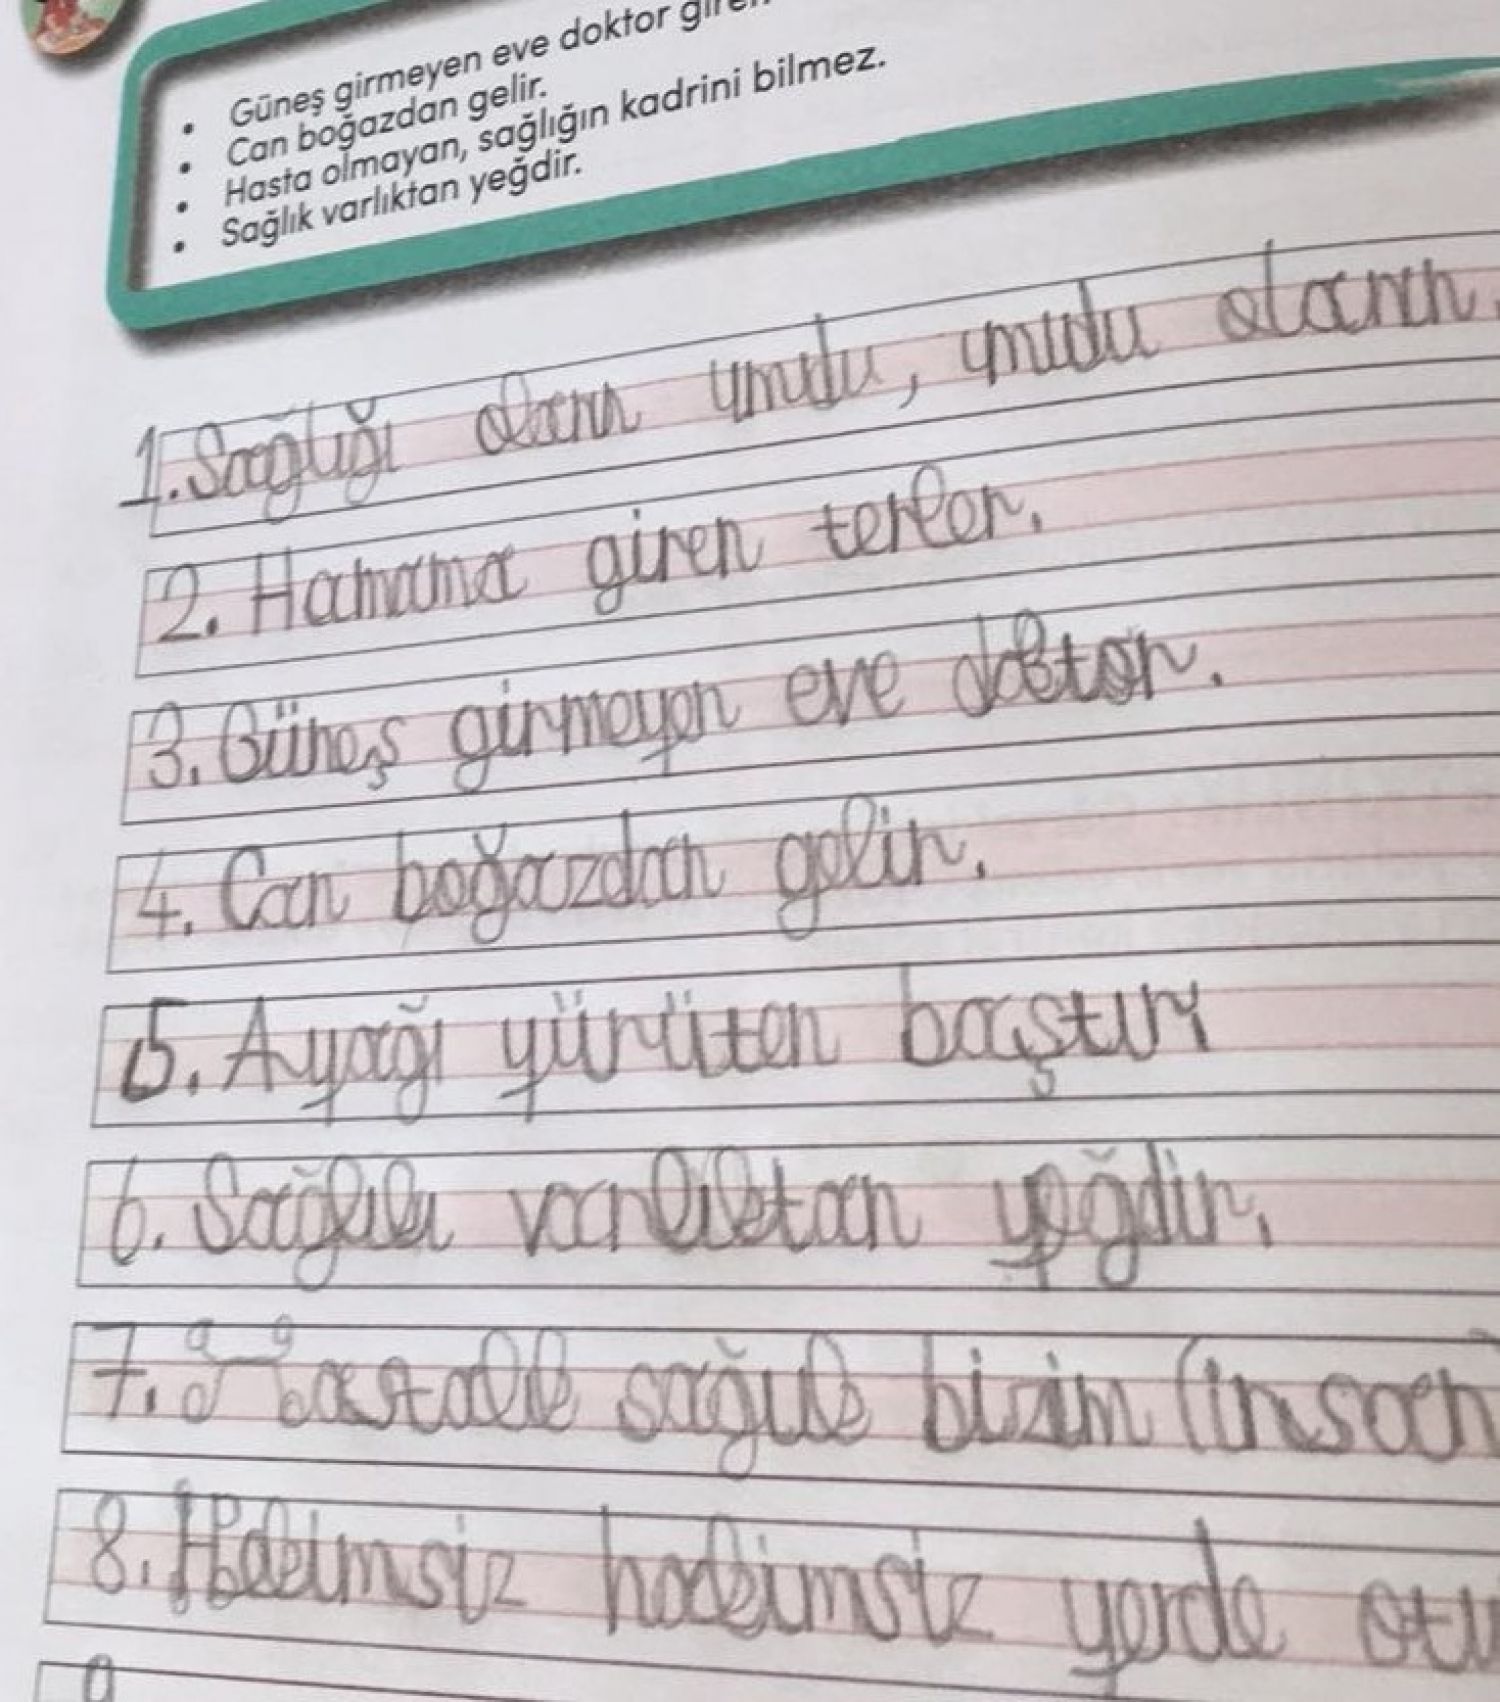 Güneş girmeyen eve doktor
Can boğazdan gelir.
Hasta olmayan, sağlığın kadrini bilmez.
Sağlık varlıktan yeğdir.
1. Sağlığı olanın umudu, umudu olanın
2. Hamama giren terler.
3. Güneş girmeyen eve doktor.
4. Can boğazdan gelir.
5. Ayağı yürüten baştır
6. Sağlık varlıktan yeğdir.
7. Hastalık sağlık bizim (insan
8. Hekimsiz hakimsiz yerde